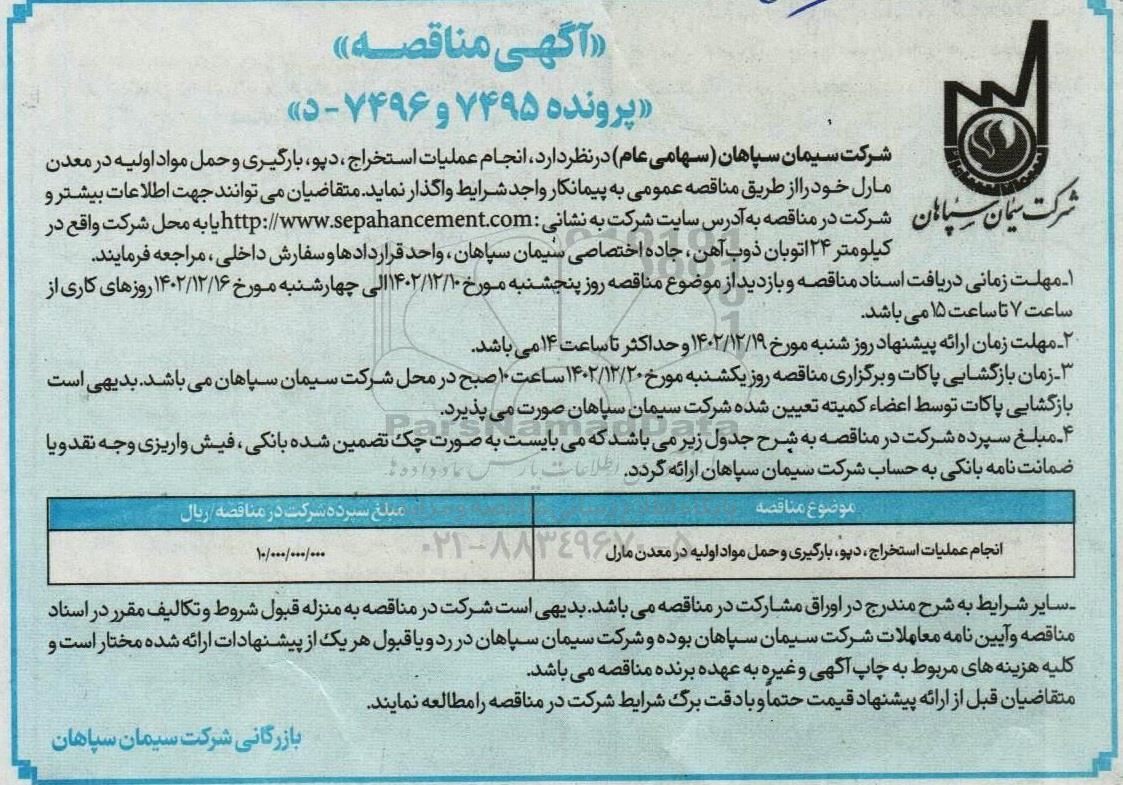 «آگهی مناقصه»
«پرونده ۷۴۹۵ و ۷۴۹۶ - د»
شرکت سیمان سپاهان
شرکت سیمان سپاهان (سهامی عام) در نظر دارد، انجام عملیات استخراج، دپو، بارگیری و حمل مواد اولیه در معدن
مارل خود را از طریق مناقصه عمومی به پیمانکار واجد شرایط واگذار نماید. متقاضیان می توانند جهت اطلاعات بیشتر و
شرکت در مناقصه به آدرس سایت شرکت به نشانی: http://www.sepahancement.com یا به محل شرکت واقع در
کیلومتر ۲۴ اتوبان ذوب آهن، جاده اختصاصی سیمان سپاهان، واحد قراردادها و سفارش داخلی، مراجعه فرمایند.
۱ـ مهلت زمانی دریافت اسناد مناقصه و بازدید از موضوع مناقصه روز پنجشنبه مورخ ۱۴۰۲/۱۲/۱۰ الی چهارشنبه مورخ ۱۴۰۲/۱۲/۱۶ روزهای کاری از
ساعت ۷ تا ساعت ۱۵ می باشد.
۲ـ مهلت زمان ارائه پیشنهاد روز شنبه مورخ ۱۴۰۲/۱۲/۱۹ و حداکثر تا ساعت ۱۴ می باشد.
۳ـ زمان بازگشایی پاکات و برگزاری مناقصه روز یکشنبه مورخ ۱۴۰۲/۱۲/۲۰ ساعت ۱۰ صبح در محل شرکت سیمان سپاهان می باشد. بدیهی است
بازگشایی پاکات توسط اعضاء کمیته تعیین شده شرکت سیمان سپاهان صورت می پذیرد.
ParsNamadData
۴ـ مبلغ سپرده شرکت در مناقصه به شرح جدول زیر می باشد که می بایست به صورت چک تضمین شده بانکی، فیش واریزی وجه نقد و یا
ضمانت نامه بانکی به حساب شرکت سیمان سپاهان ارائه گردد.
موضوع مناقصه
مبلغ سپرده شرکت در مناقصه/ریال
انجام عملیات استخراج، دپو، بارگیری و حمل مواد اولیه در معدن مارل
۱۰/۰۰۰/۰۰۰/۰۰۰
۰۲۱-۸۸۳۴۹۶۷۰-۵
ـ سایر شرایط به شرح مندرج در اوراق مشارکت در مناقصه می باشد. بدیهی است شرکت در مناقصه به منزله قبول شروط و تکالیف مقرر در اسناد
مناقصه و آیین نامه معاملات شرکت سیمان سپاهان بوده و شرکت سیمان سپاهان در رد و یا قبول هر یک از پیشنهادات ارائه شده مختار است و
کلیه هزینه های مربوط به چاپ آگهی و غیره به عهده برنده مناقصه می باشد.
متقاضیان قبل از ارائه پیشنهاد قیمت حتماً و با دقت برگ شرایط شرکت در مناقصه را مطالعه نمایند.
بازرگانی شرکت سیمان سپاهان